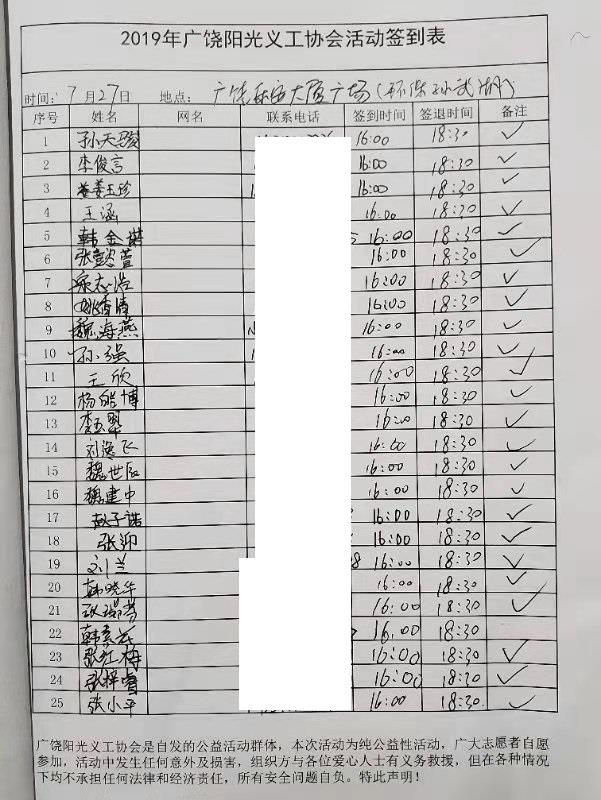 2019年广饶阳光义工协会活动签到表
时间: 7月27日 地点: 广饶乐安大厦广场(环保孙武湖)
序号 姓名 网名 联系电话 签到时间 签退时间 备注
1 孙天骏 16:00 18:30 ✓
2 李俊言 16:00 18:30 ✓
3 姜玉珍 16:00 18:30 ✓
4 王涵 16:00 18:30 ✓
5 韩金 16:00 18:30 ✓
6 张懿萱 16:00 18:30 ✓
7 宋志浩 16:00 18:30 ✓
8 姚香清 16:00 18:30 ✓
9 魏海燕 16:00 18:30 ✓
10 孙强 16:00 18:30 ✓
11 王欣 16:00 18:30 ✓
12 杨皓博 16:00 18:30 ✓
13 李玉翠 16:00 18:30 ✓
14 刘逸飞 16:00 18:30 ✓
15 魏世 16:00 18:30 ✓
16 魏建中 16:00 18:30 ✓
17 赵子诺 16:00 18:30 ✓
18 张 16:00 18:30 ✓
19 刘兰 16:00 18:30 ✓
20 韩晓华 16:00 18:30 ✓
21 张瑞芳 16:00 18:30 ✓
22 韩素云 16.00 18:30
23 张红梅 16:00 18:30 ✓
24 张梓睿 16:00 18:30 ✓
25 张小平 16:00 18:30 ✓
广饶阳光义工协会是自发的公益活动群体，本次活动为纯公益性活动，广大志愿者自愿
参加，活动中发生任何意外及损害，组织方与各位爱心人士有义务救援，但在各种情况
下均不承担任何法律和经济责任，所有安全问题自负。特此声明！